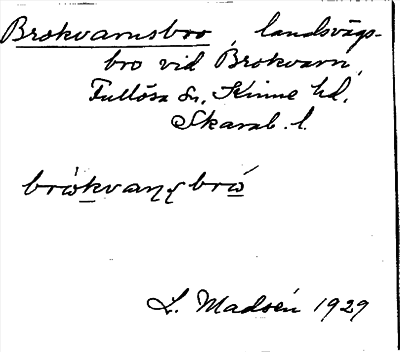 Brokvarnsbro, landsvägs-
bro vid Brokvarn,
Fullösa sn, Kinne hd,
Skarab. l.
L. Madsén 1929